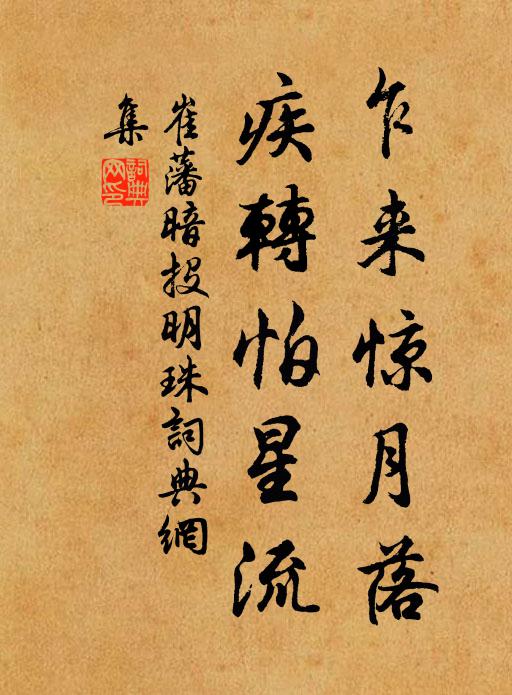 乍来惊月落
疾轉怕星流
崔藩暗投明珠詞典網
集
詞典網印